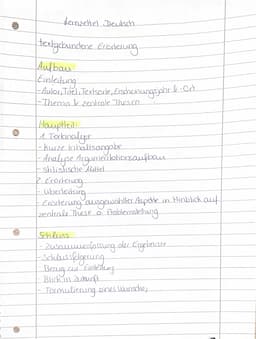 Lernzettel Deutsch
textgebundene Erörterung
Aufbau
Einleitung
- Autor, Titel, Textsorte, Erscheinungsjahr & -Ort
- Thema & zentrale Thesen
Hauptteil
1. Textanalyse
- kurze Inhaltsangabe
- Analyse Argumentationsaufbau
- stilistische Mittel
2. Erörterung
- Überleitung
- Erörterung ausgewählter Aspekte in Hinblick auf
zentrale These o. Problemstellung
Schluss
- Zusammenfassung der Ergebnisse
- Schlussfolgerung
Bezug zur Einleitung
Blick in Zukunft
- Formulierung eines Wunsches,